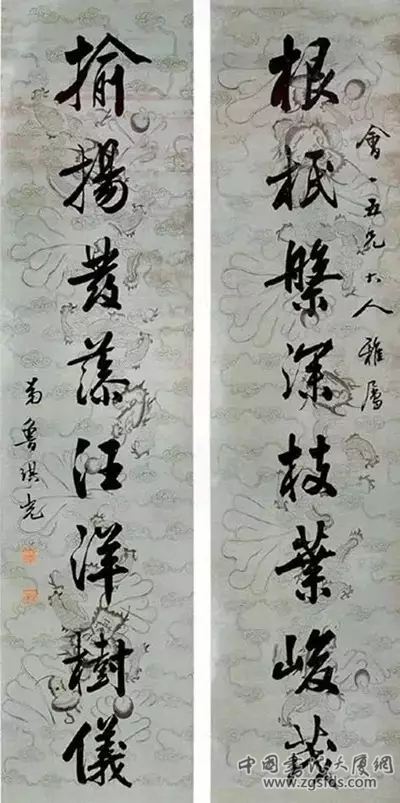 會一五兄大人雅屬
根柢槃深枝葉峻茂
揄揚發藻汪洋樹儀
弟魯琪光
中国书法大厦網
www.zgsfds.com